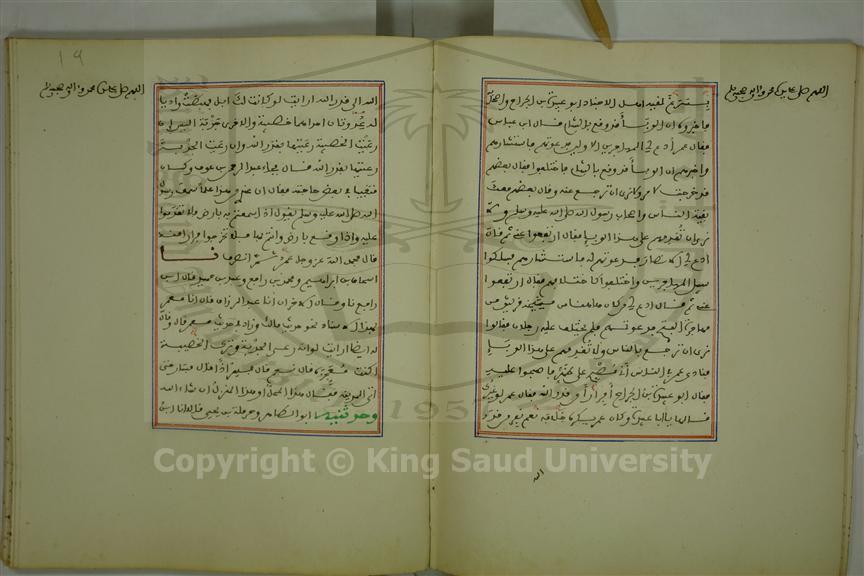 اللهم صل على سيدنا محمد وآله وصحبه وسلم
بسرغ لقيه اهل الاجناد ابو عبيدة بن الجراح واصحابه
فاخبروه ان الوبأ قد وقع بالشام قال ابن عباس
فقال عمر ادع لي المهاجرين الاولين فدعوتهم فاستشارهم
واخبرهم ان الوبأ قد وقع بالشام فاختلفوا فقال بعضهم
قد خرجت لامر ولا نرى ان ترجع عنه وقال بعضهم معك
بقية الناس واصحاب رسول الله صلى الله عليه وسلم ولا
نرى ان تقدمهم على هذا الوبإ فقال ارتفعوا عني ثم قال
ادع لي الانصار فدعوتهم له فاستشارهم فسلكوا
سبيل المهاجرين واختلفوا كاختلافهم فقال ارتفعوا
عني ثم قال ادع لي من كان هاهنا من مشيخة قريش من
مهاجرة الفتح فدعوتهم فلم يختلف عليه رجلان فقالوا
نرى ان ترجع بالناس ولا تقدمهم على هذا الوبإ
فنادى عمر في الناس اني مصبح على ظهر فاصبحوا عليه
فقال ابو عبيدة بن الجراح أفرارا من قدر الله فقال عمر لو غيرك
قالها يا ابا عبيدة وكان عمر يكره خلافه نعم نفر من قدر
الله
١٩
اللهم صل على سيدنا محمد وآله وصحبه وسلم
الله الى قدر الله ارايت لو كانت لك ابل فهبطت واديا
له عدوتان احداهما خصبة والاخرى جدبة اليس ان
رعيت الخصبة رعيتها بقدر الله وان رعيت الجدبة
رعيتها بقدر الله قال فجاء عبد الرحمن بن عوف وكان
متغيبا في بعض حاجته فقال ان عندي من هذا علما سمعت رسول
الله صلى الله عليه وسلم يقول اذا سمعتم به بارض فلا تقدموا
عليه واذا وقع بارض وانتم بها فلا تخرجوا فرارا منه
قال فحمد الله عز وجل عمر ثم انصرف نا
اسحاق بن ابراهيم ومحمد بن رافع وعبد بن حميد قال ابن
رافع نا وقال الاخران انا عبد الرزاق قال انا معمر
بهذا الاسناد نحو حديث مالك وزاد في حديث معمر قال وقال
له ايضا ارايت لو انه رعى الجدبة وترك الخصبة
اكنت معجزه قال نعم قال فسر اذا قال فسار حتى
اتى المدينة فقال هذا المحل او هذا المنزل ان شاء الله
وحدثنيه ابو الطاهر وحرملة بن يحيى قالا انا ابن
Copyright © King Saud University
1957